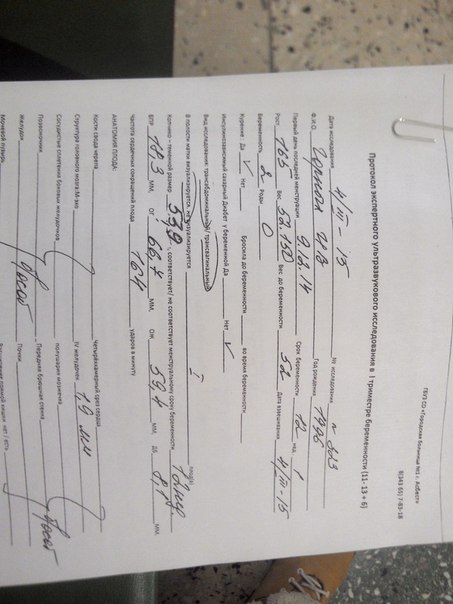 ГБУЗ СО «Городская больница №1 г. Асбест»
8(343 65) 7-83-18
Протокол экспертного ультразвукового исследования в I триместре беременности (11- 13 + 6)
Дата исследования 4/III - 15 № исследования
Ф.И.О. И В Год рождения
Первый день последней менструации 9.12.14 Срок беременности 12 нед
Рост 165 Вес 52.150 Вес до беременности 52 Дата взвешивания 4/III-15
Беременность 2 Роды 0
Курение: Да V Нет Бросила до беременности во время беременности
Инсулинзависимый сахарный диабет у беременной Да Нет V
Вид исследования: трансабдоминальный, трансвагинальный
В полости матки визуализируется, не визуализируется I плод(а)
Копчико – теменной размер 53,9 соответствует/ не соответствует менструальному сроку беременности
БПР 18,3 мм, ОГ 66,7 мм. Ож 59,4 мм, ДБ 8,1 мм.
Частота сердечных сокращений плода 164 ударов в минуту
АНАТОМИЯ ПЛОДА:
Кости свода черепа Четырехкамерный срез сердца
Структура головного мозга: М-эхо IV желудочек 1,9 мм
Сосудистые сплетения боковых желудочков полушария мозжечка
Позвоночник Передняя брюшная стенка
Желудок Почки
Мочевой пузырь нет / есть